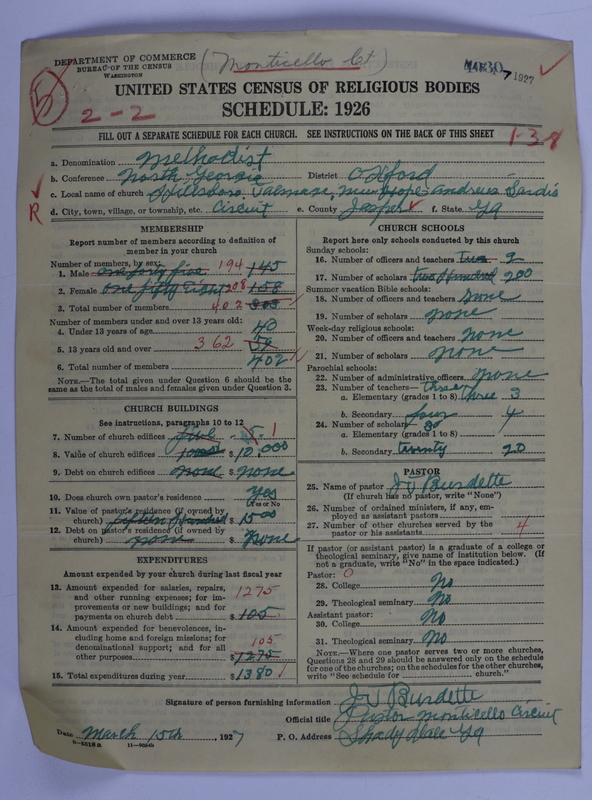 DEPARTMENT OF COMMERCE
BUREAU OF THE CENSUS
WASHINGTON
(Monticello Ct)
MAR 30 1927
5
2-2
UNITED STATES CENSUS OF RELIGIOUS BODIES
SCHEDULE: 1926
FILL OUT A SEPARATE SCHEDULE FOR EACH CHURCH. SEE INSTRUCTIONS ON THE BACK OF THIS SHEET
1-38
a. Denomination Methodist
b. Conference North Georgia District Oxford
c. Local name of church Hillsboro, Palmare, New hope- Andrews Sardis
R
d. City, town, village, or township, etc. Circuit e. County Jasper f. State Ga
MEMBERSHIP
Report number of members according to definition of member in your church
Number of members, by sex:
1. Male one forty five 194 145
2. Female one fifty eight 208 158
3. Total number of members 402 303
Number of members under and over 13 years old:
4. Under 13 years of age 40
5. 13 years old and over 362
6. Total number of members 402
NOTE.—The total given under Question 6 should be the same as the total of males and females given under Question 3.
CHURCH BUILDINGS
See instructions, paragraphs 10 to 12
7. Number of church edifices five 5 1
8. Value of church edifices $10,000
9. Debt on church edifices none $ none
10. Does church own pastor's residence yes
(Yes or No)
11. Value of pastor's residence (if owned by church) fifteen hundred $1500
12. Debt on pastor's residence (if owned by church) none $ none
EXPENDITURES
Amount expended by your church during last fiscal year
13. Amount expended for salaries, repairs, and other running expenses; for improvements or new buildings; and for payments on church debt 1275 $105
14. Amount expended for benevolences, including home and foreign missions; for denominational support; and for all other purposes 105 $1275
15. Total expenditures during year $1380
CHURCH SCHOOLS
Report here only schools conducted by this church
Sunday schools:
16. Number of officers and teachers two 2
17. Number of scholars two hundred 200
Summer vacation Bible schools:
18. Number of officers and teachers none
19. Number of scholars none
Week-day religious schools:
20. Number of officers and teachers none
21. Number of scholars none
Parochial schools:
22. Number of administrative officers none
23. Number of teachers—
a. Elementary (grades 1 to 8) three 3
b. Secondary four 4
24. Number of scholars—
a. Elementary (grades 1 to 8) 30
b. Secondary twenty 20
PASTOR
25. Name of pastor J W Burdette
(If church has no pastor, write "None")
26. Number of ordained ministers, if any, employed as assistant pastors
27. Number of other churches served by the pastor or his assistants 4
If pastor (or assistant pastor) is a graduate of a college or theological seminary, give name of institution below. (If not a graduate, write "No" in the space indicated.)
Pastor: 0
28. College No
29. Theological seminary No
Assistant pastor:
30. College No
31. Theological seminary No
NOTE.—Where one pastor serves two or more churches, Questions 28 and 29 should be answered only on the schedule for one of the churches; on the schedules for the other churches, write "See schedule for church."
Signature of person furnishing information J W Burdette
Official title Pastor Monticello Circuit
Date March 15th, 1927 P. O. Address Shady Dale Ga
11—9054a